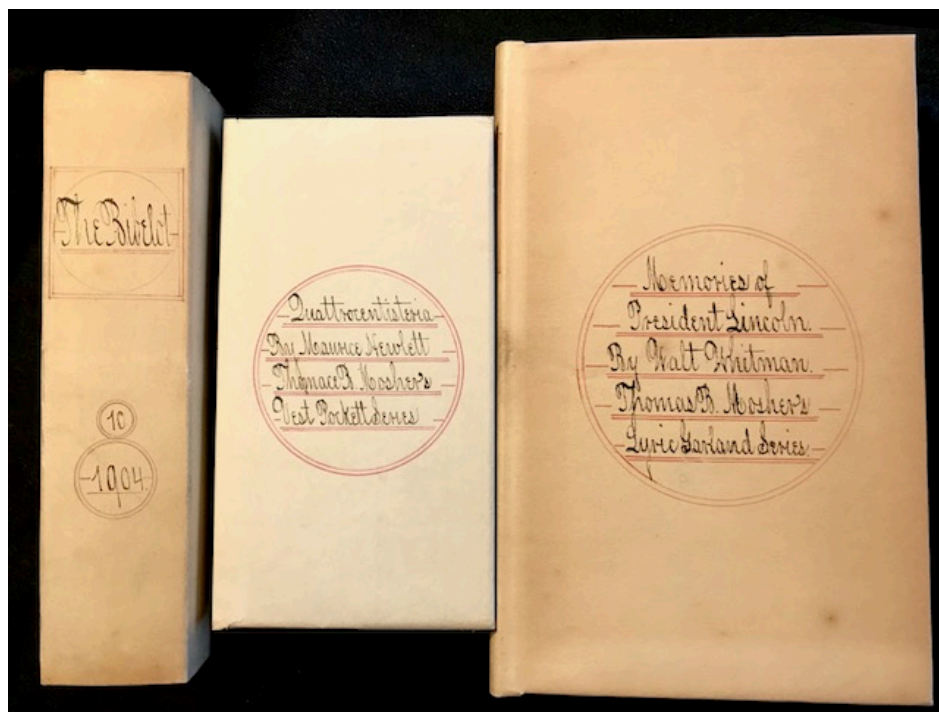 The Bibelot
10
1904.
Quattrocentisteria
By Maurice Newlett
Thomace B. Mosher's
Vest Pockett Series
Memories of
President Lincoln.
By Walt Whitman.
Thomas B. Mosher's
Lyric Garland Series.